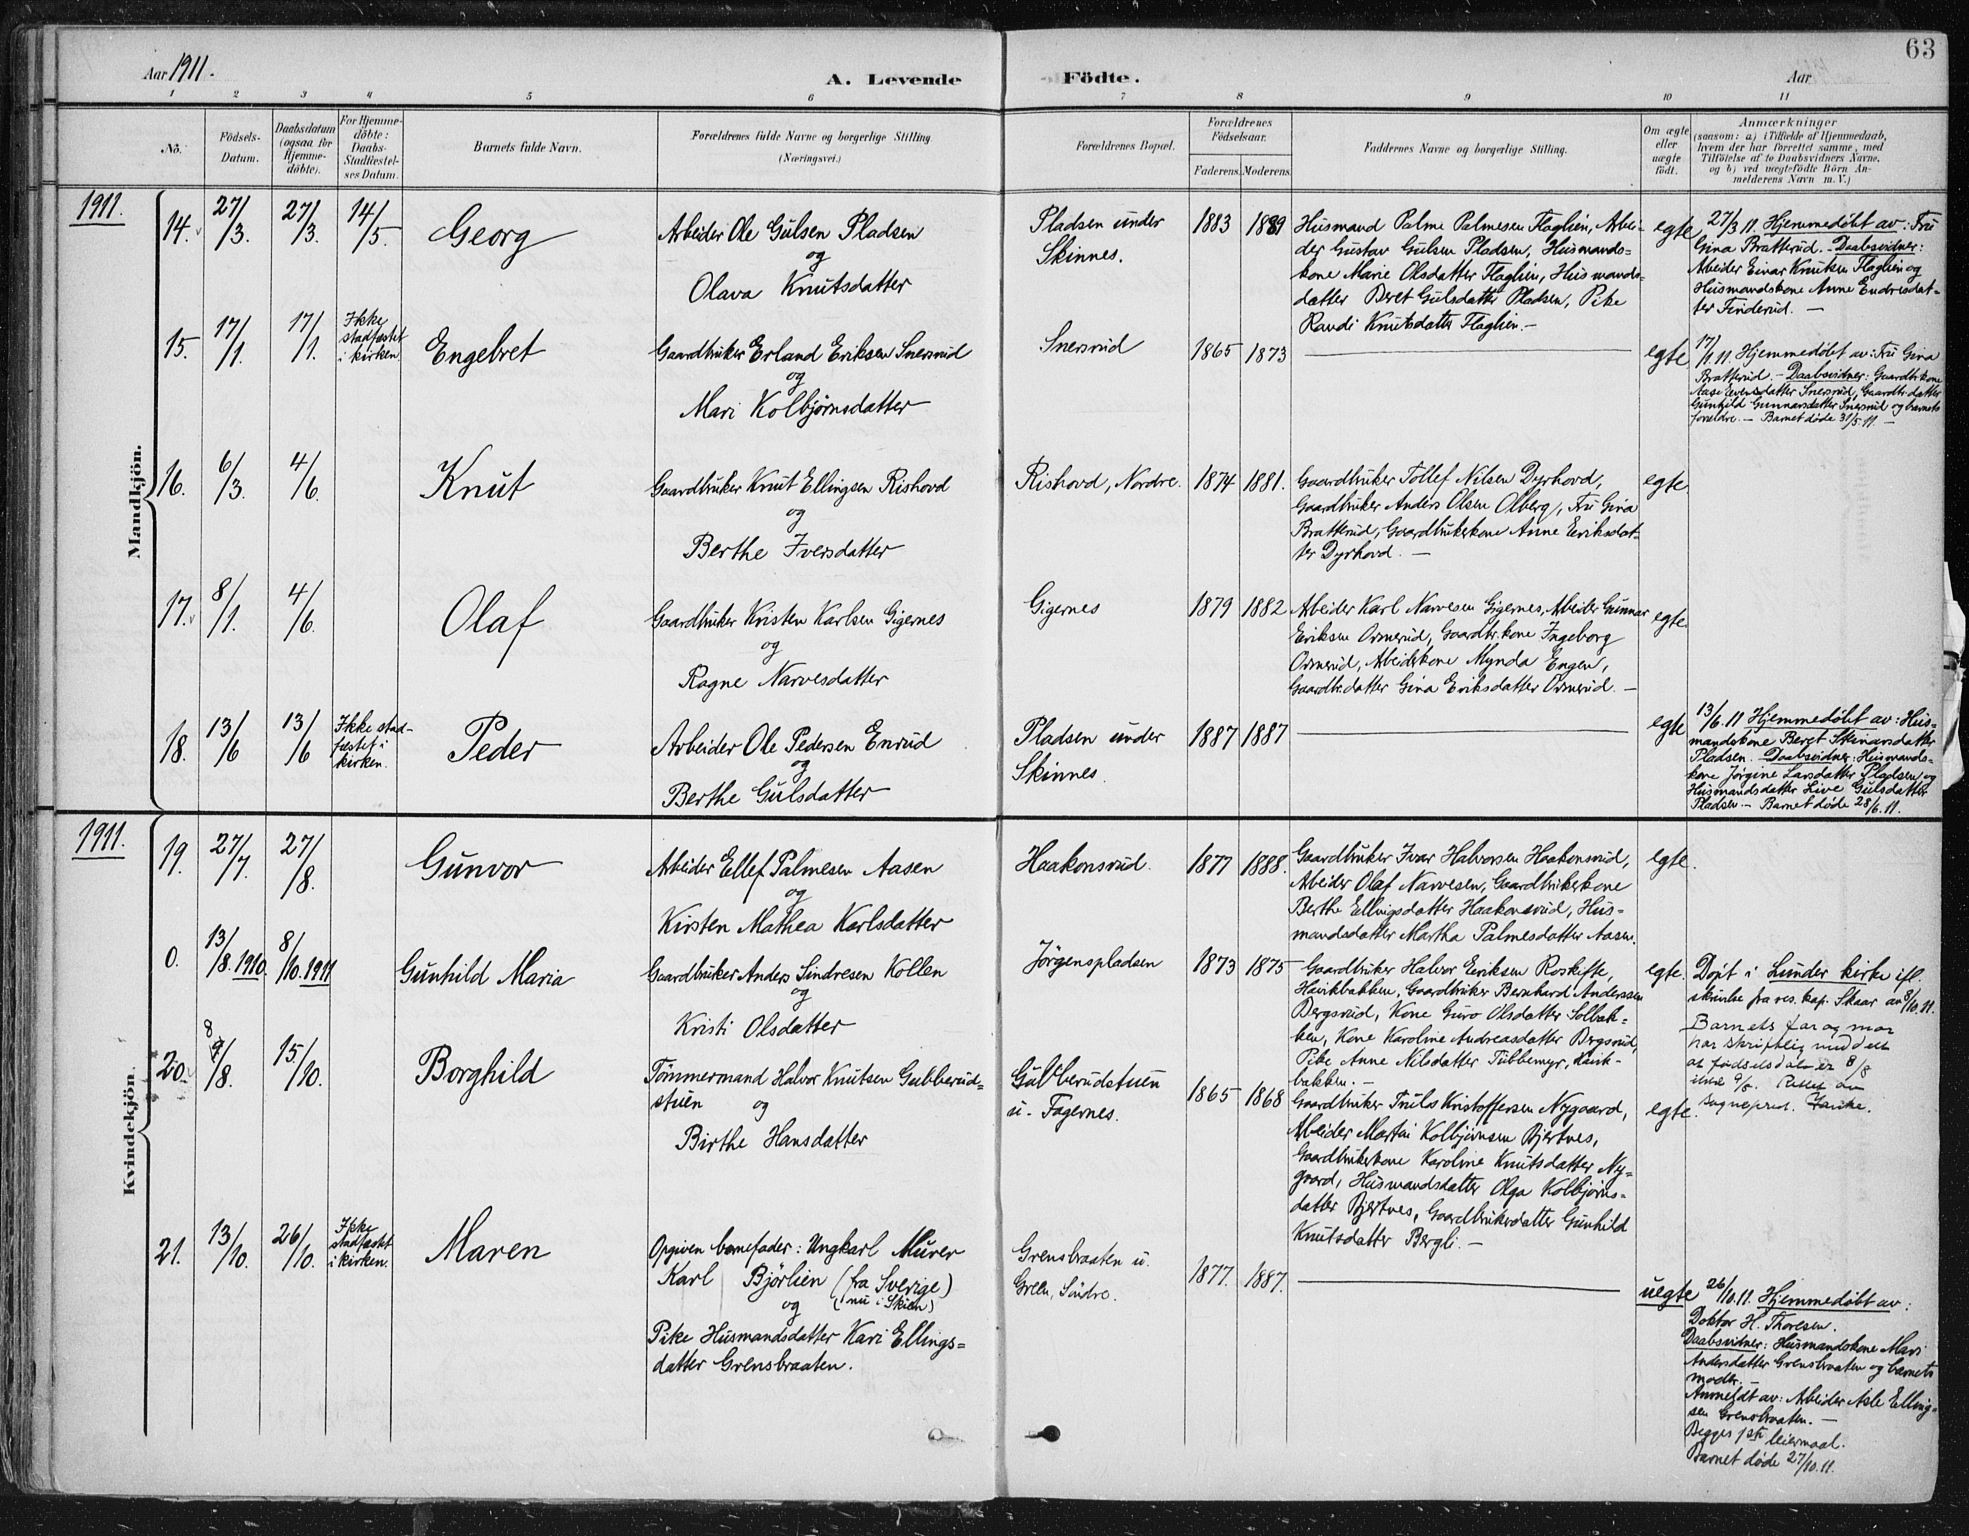 63
Aar 1911.
A. Levende Födte.
Aar
1 2 3 4 5 6 7 8 9 10 11
No.
Födsels-
Datum.
Daabsdatum
(ogsaa for
Hjemme-
döbte).
For Hjemme-
döbte:
Daabs-
Stadfæstel-
ses Datum.
Barnets fulde Navn.
Forældrenes fulde Navne og borgerlige Stilling.
(Næringsvei.)
Forældrenes Bopæl.
Forældrenes
Födselsaar.
Faderens. Moderens.
Faddernes Navne og borgerlige Stilling.
Om ægte
eller
uægte
födt.
Anmærkninger
(saasom: a.) i Tilfælde af Hjemmedaab,
hvem der har forrettet samme, med
Tilföielse af to Daabsvidners Navne,
og b) ved uægtefödte Börn An-
melderens Navn m. V.)
Mandkjön.
1911.
14. 27/3. 27/3. 14/5. Georg
Arbeider Ole Gulsen Pladsen
og
Olava Knutsdatter
Pladsen under
Skinnes.
1883 1889
Husmand Palme Palmesen Flaglien, Arbei-
der Gustav Gulsen Pladsen, Husmands-
kone Marie Olsdatter Flaglien, Husmands-
datter Beret Gulsdatter Pladsen, Pike
Randi Knutsdatter Flaglien. —
egte
27/3 11. Hjemmedøbt av: Fru
Gina Bratterud. Daabsvidner:
Arbeider Einar Knutsen Flaglien og
Husmandskone Anne Endresdat-
ter Finderud. —
15. 17/1. 17/1. Ikke
stadfæstet
i kirken
Engebret
Gaardbruker Erland Eriksen Snersrud
og
Mari Kolbjørnsdatter
Snersrud
1865 1873
egte
17/1. 11. Hjemmedøbt av: Fru Gina
Bratterud. — Daabsvidner: Gaardbr.kone
Aase Evensdatter Snersrud, Gaardbr.datter
Gunhild Gunnarsdatter Snersrud og barnets
foreldre. — Barnet døde 31/5 11. —
16. 6/3. 4/6. Knut
Gaardbruker Knut Ellingsen Rishovd
og
Berthe Iversdatter
Rishovd, Nordre.
1874 1881.
Gaardbruker Tollef Nilsen Dyrhovd,
Gaardbruker Anders Olsen Olberg, Fru Gina
Bratterud, Gaardbrukerkone Anne Eriksdat-
ter Dyrhovd. —
egte.
17. 8/1. 4/6. Olaf
Gaardbruker Kristen Karlsen Gigernes
og
Ragne Narvesdatter
Gigernes
1879 1882
Arbeider Karl Narvesen Gigernes, Arbeider Gunnar
Eriksen Ormerud, Gaardbr.kone Ingeborg
Ormerud, Arbeiderkone Mynda Engen,
Gaardbr.datter Gina Eriksdatter Ormerud. —
egte.
18. 13/6 13/6 Ikke stad-
fæstet i
kirken.
Peder
Arbeider Ole Pedersen Enrud
og
Berthe Gulsdatter
Pladsen under
Skinnes.
1887 1887
egte
13/6. 11 Hjemmedøbt av: Hus-
mandskone Beret Steinarsdatter
Pladsen. Daabsvidner: Husmands-
kone Jørgine Larsdatter Pladsen og
Husmandsdatter Live Gulsdatter
Pladsen — Barnet døde 28/6. 11.
Kvindekjön.
1911.
19. 27/7. 27/8. Gunvor
Arbeider Ellef Palmesen Aasen
og
Kirsten Mathea Karlsdatter
Haakonsrud.
1877 1888.
Gaardbruker Ivar Halvorsen Haakonsrud,
Arbeider Olaf Narvesen, Gaardbrukerkone
Berthe Ellingsdatter Haakonsrud, Hus-
mandsdatter Martha Palmesdatter Aasen.
egte.
0. 13/8. 1910. 8/10. 1911 Gunhild Maria
Gaardbruker Anders Sindresen Kollen
og
Kristi Olsdatter
Jørgenspladsen
1873 1875
Gaardbruker Halvor Eriksen Roskifte,
Haukbakken, Gaardbruker Bernhard Anderssen
Bergsrud, Kone Guro Olsdatter Solbak-
ken, Kone Karoline Andreasdatter Bergsrud,
Pike Anne Nilsdatter Tubbemyr, Hauk-
bakken. —
egte.
Døpt i Lunder kirke ifl.
skrivelse fra res. kap. Skaar av 8/10. 11.
20. 8 9/8. 15/10. Borghild
Tømmermand Halvor Knutsen Gubberud-
stuen
og
Birthe Hansdatter
Gubberudstuen
u. Fagernes.
1865 1868
Gaardbruker Truls Kristoffersen Nygaard,
Arbeider Martin Kolbjørnsen Bjertnes,
Gaardbrukerkone Karoline Knutsdatter Ny-
gaard, Husmandsdatter Olga Kolbjørns-
datter Bjertnes, Gaardbrukerdatter Gunhild
Knutsdatter Bergli. —
egte.
Barnets far og mor
har skriftlig meddelt
at fødselsdato er 8/8
ikke 9/8. Rettet av
Sogneprest.
21. 13/10. 26/10. Ikke
stadfæstet
i kirken.
Maren
Opgiven barnefader: Ungkarl Murer
Karl Bjørlien (fra Sverige)
og (nu i Skien)
Pike Husmandsdatter Kari Ellings-
datter Grensbraaten.
Grensbraaten u.
Green, Söndre.
1877. 1887.
uegte
26/10. 11. Hjemmedøbt av:
Doktor H. Thoresen.
Daabsvidner: Husmandskone Mari
Andersdatter Grensbraaten og barnets
moder. —
Anmeldt av: Arbeider Asle Elling-
sen Grensbraaten. —
Begges 1ste leiermaal.
Barnet døde 27/10. 11.